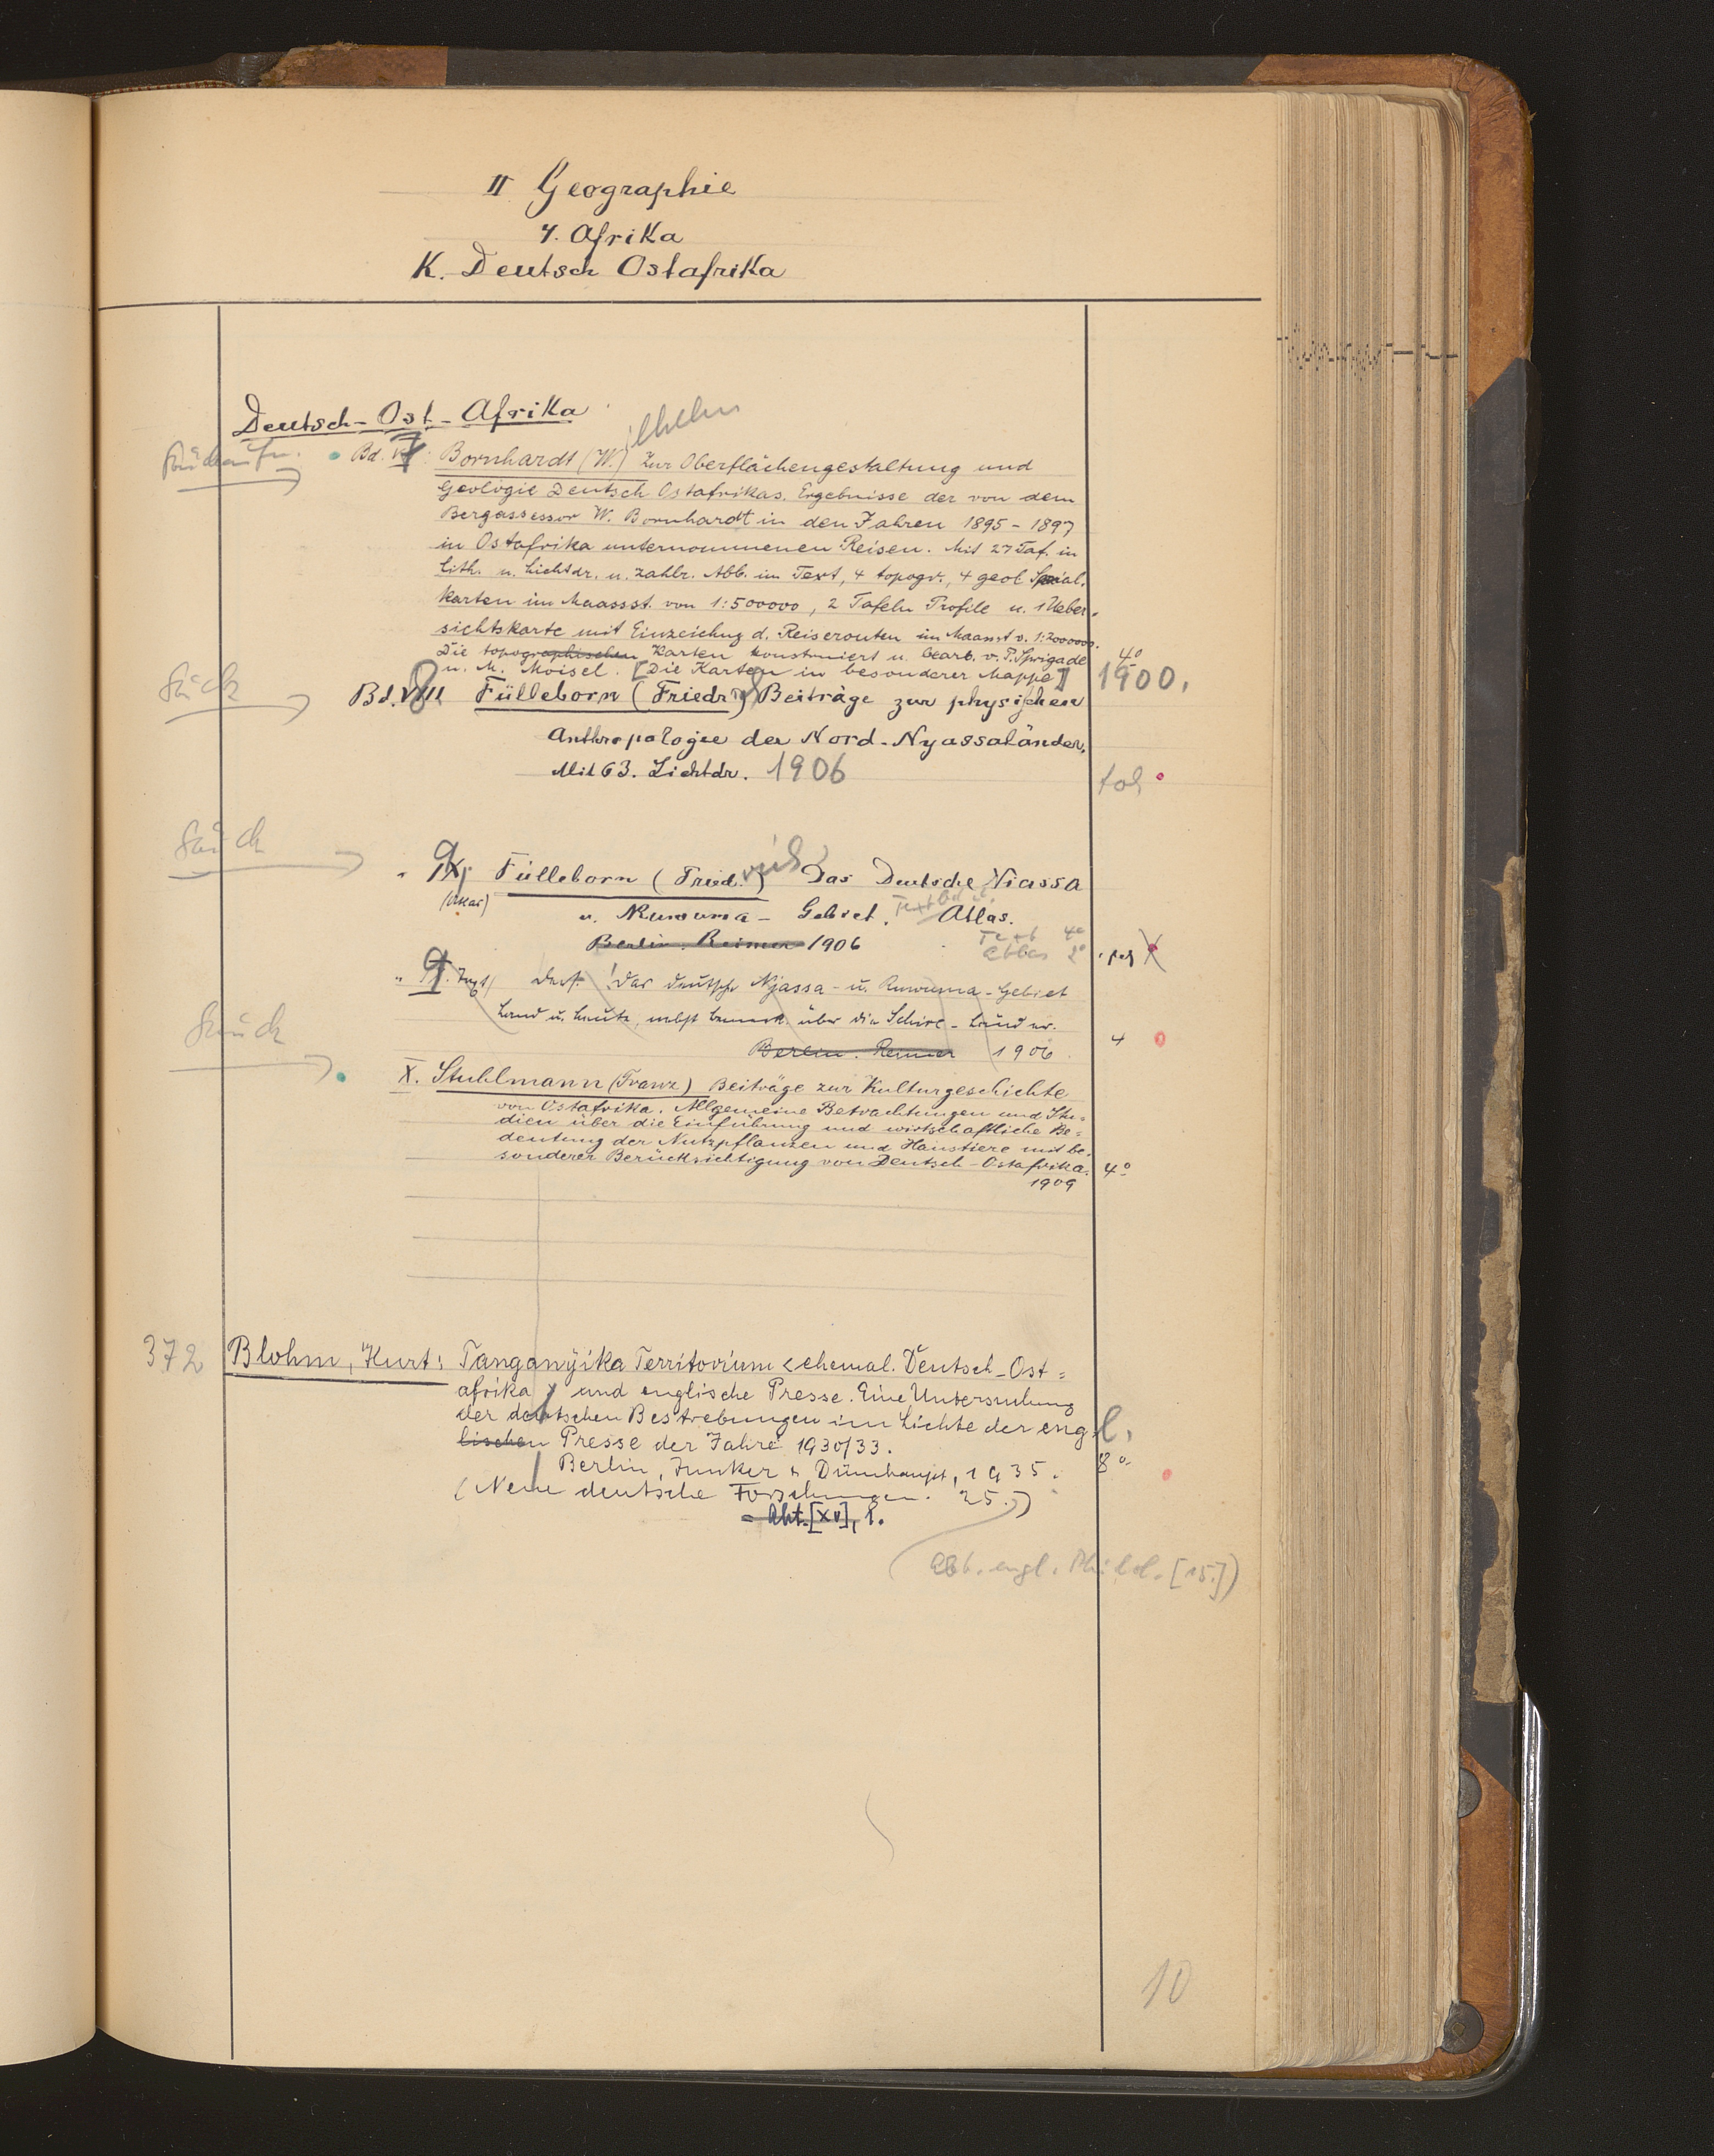 II Geographie
4. Afrika
K. Deutsch Ostafrika
Deutsch-Ost-Afrika
ilhelm
Bd. 7: Bornhardt (W.) Zur Oberflächengestaltung und
Geologie Deutsch Ostafrikas. Ergebnisse der von dem
Bergassessor W. Bornhardt in den Jahren 1895-1897
in Ostafrika unternommenen Reisen. Mit 27 Taf. in
Lith. u. Lichtdr. u. zahlr. Abb. im Text, 4 topogr., 4 geol. Spezial.
karten im Maassst. von 1:500000, 2 Tafeln Profile u. 1 Ueber-
sichtskarte mit Einzeichng d. Reiserouten im Maasst v. 1:2000000.
Die topographischen Karten konstruiert u. bearb. v. P. Sprigade 4°
u. M. Moisel. [Die Karten in besonderer Mappe] 1900.
Bd. 8 Fülleborn (Friedr.) Beiträge zur physischen
Anthropologie der Nord-Nyassaländer.
Mit 63. Lichtdr. 1906
fol.
" 9 Fülleborn (Fried.) Das Deutsche Niassa
(Atlas) u. Ruwuma-Gebiet. Text Atlas.
Berlin. Reimer 1906
Text 4°
Atlas 2°
" 9. Text/ Dass. ! Das deutsche Njassa- u. Ruwuma-Gebiet
Land u. Leute, nebst Bemerk. über die Schire-Länder.
Berlin. Reimer 1906. 4
X. Stuhlmann (Franz) Beiträge zur Kulturgeschichte
von Ostafrika. Allgemeine Betrachtungen und Stu=
dien über die Einführung und wirtschaftliche Be=
deutung der Nutzpflanzen und Haustiere mit be=
sonderer Berücksichtigung von Deutsch-Ostafrika. 4°
1909
372 Blohm, Kurt: Tanganyika Territorium <ehemal. Deutsch-Ost=
afrika> und englische Presse. Eine Untersuchung
der deutschen Bestrebungen im Lichte der engl.
lischen Presse der Jahre 1930/33.
Berlin, Junker & Dünnhaupt, 1935. 8°
(Neue deutsche Forschungen. 25.)
= Abt. [XV], 1.
(Abt. engl. Philol. [15.])
10